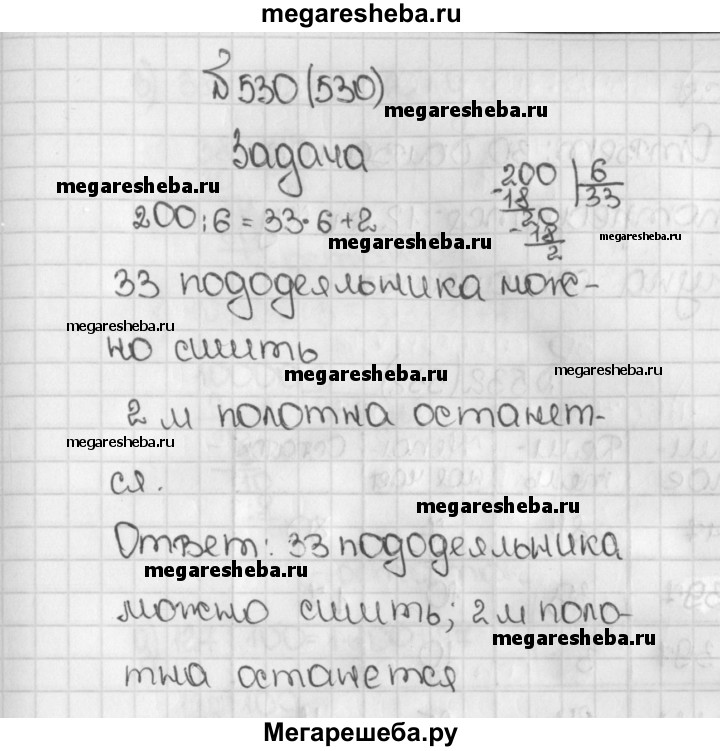 megaresheba.ru
№ 530 (530)
megaresheba.ru
Задача
megaresheba.ru
200 : 6 = 33 · 6 + 2
megaresheba.ru
200 | 6
- 18 | 33
20
- 18
2
megaresheba.ru
33 пододеяльника мож-
megaresheba.ru
но сшить
megaresheba.ru
megaresheba.ru
2 м полотна останет-
megaresheba.ru
ся.
megaresheba.ru
Ответ: 33 пододеяльника
megaresheba.ru
можно сшить; 2 м поло-
megaresheba.ru
тна останется
Мегарешеба.ру